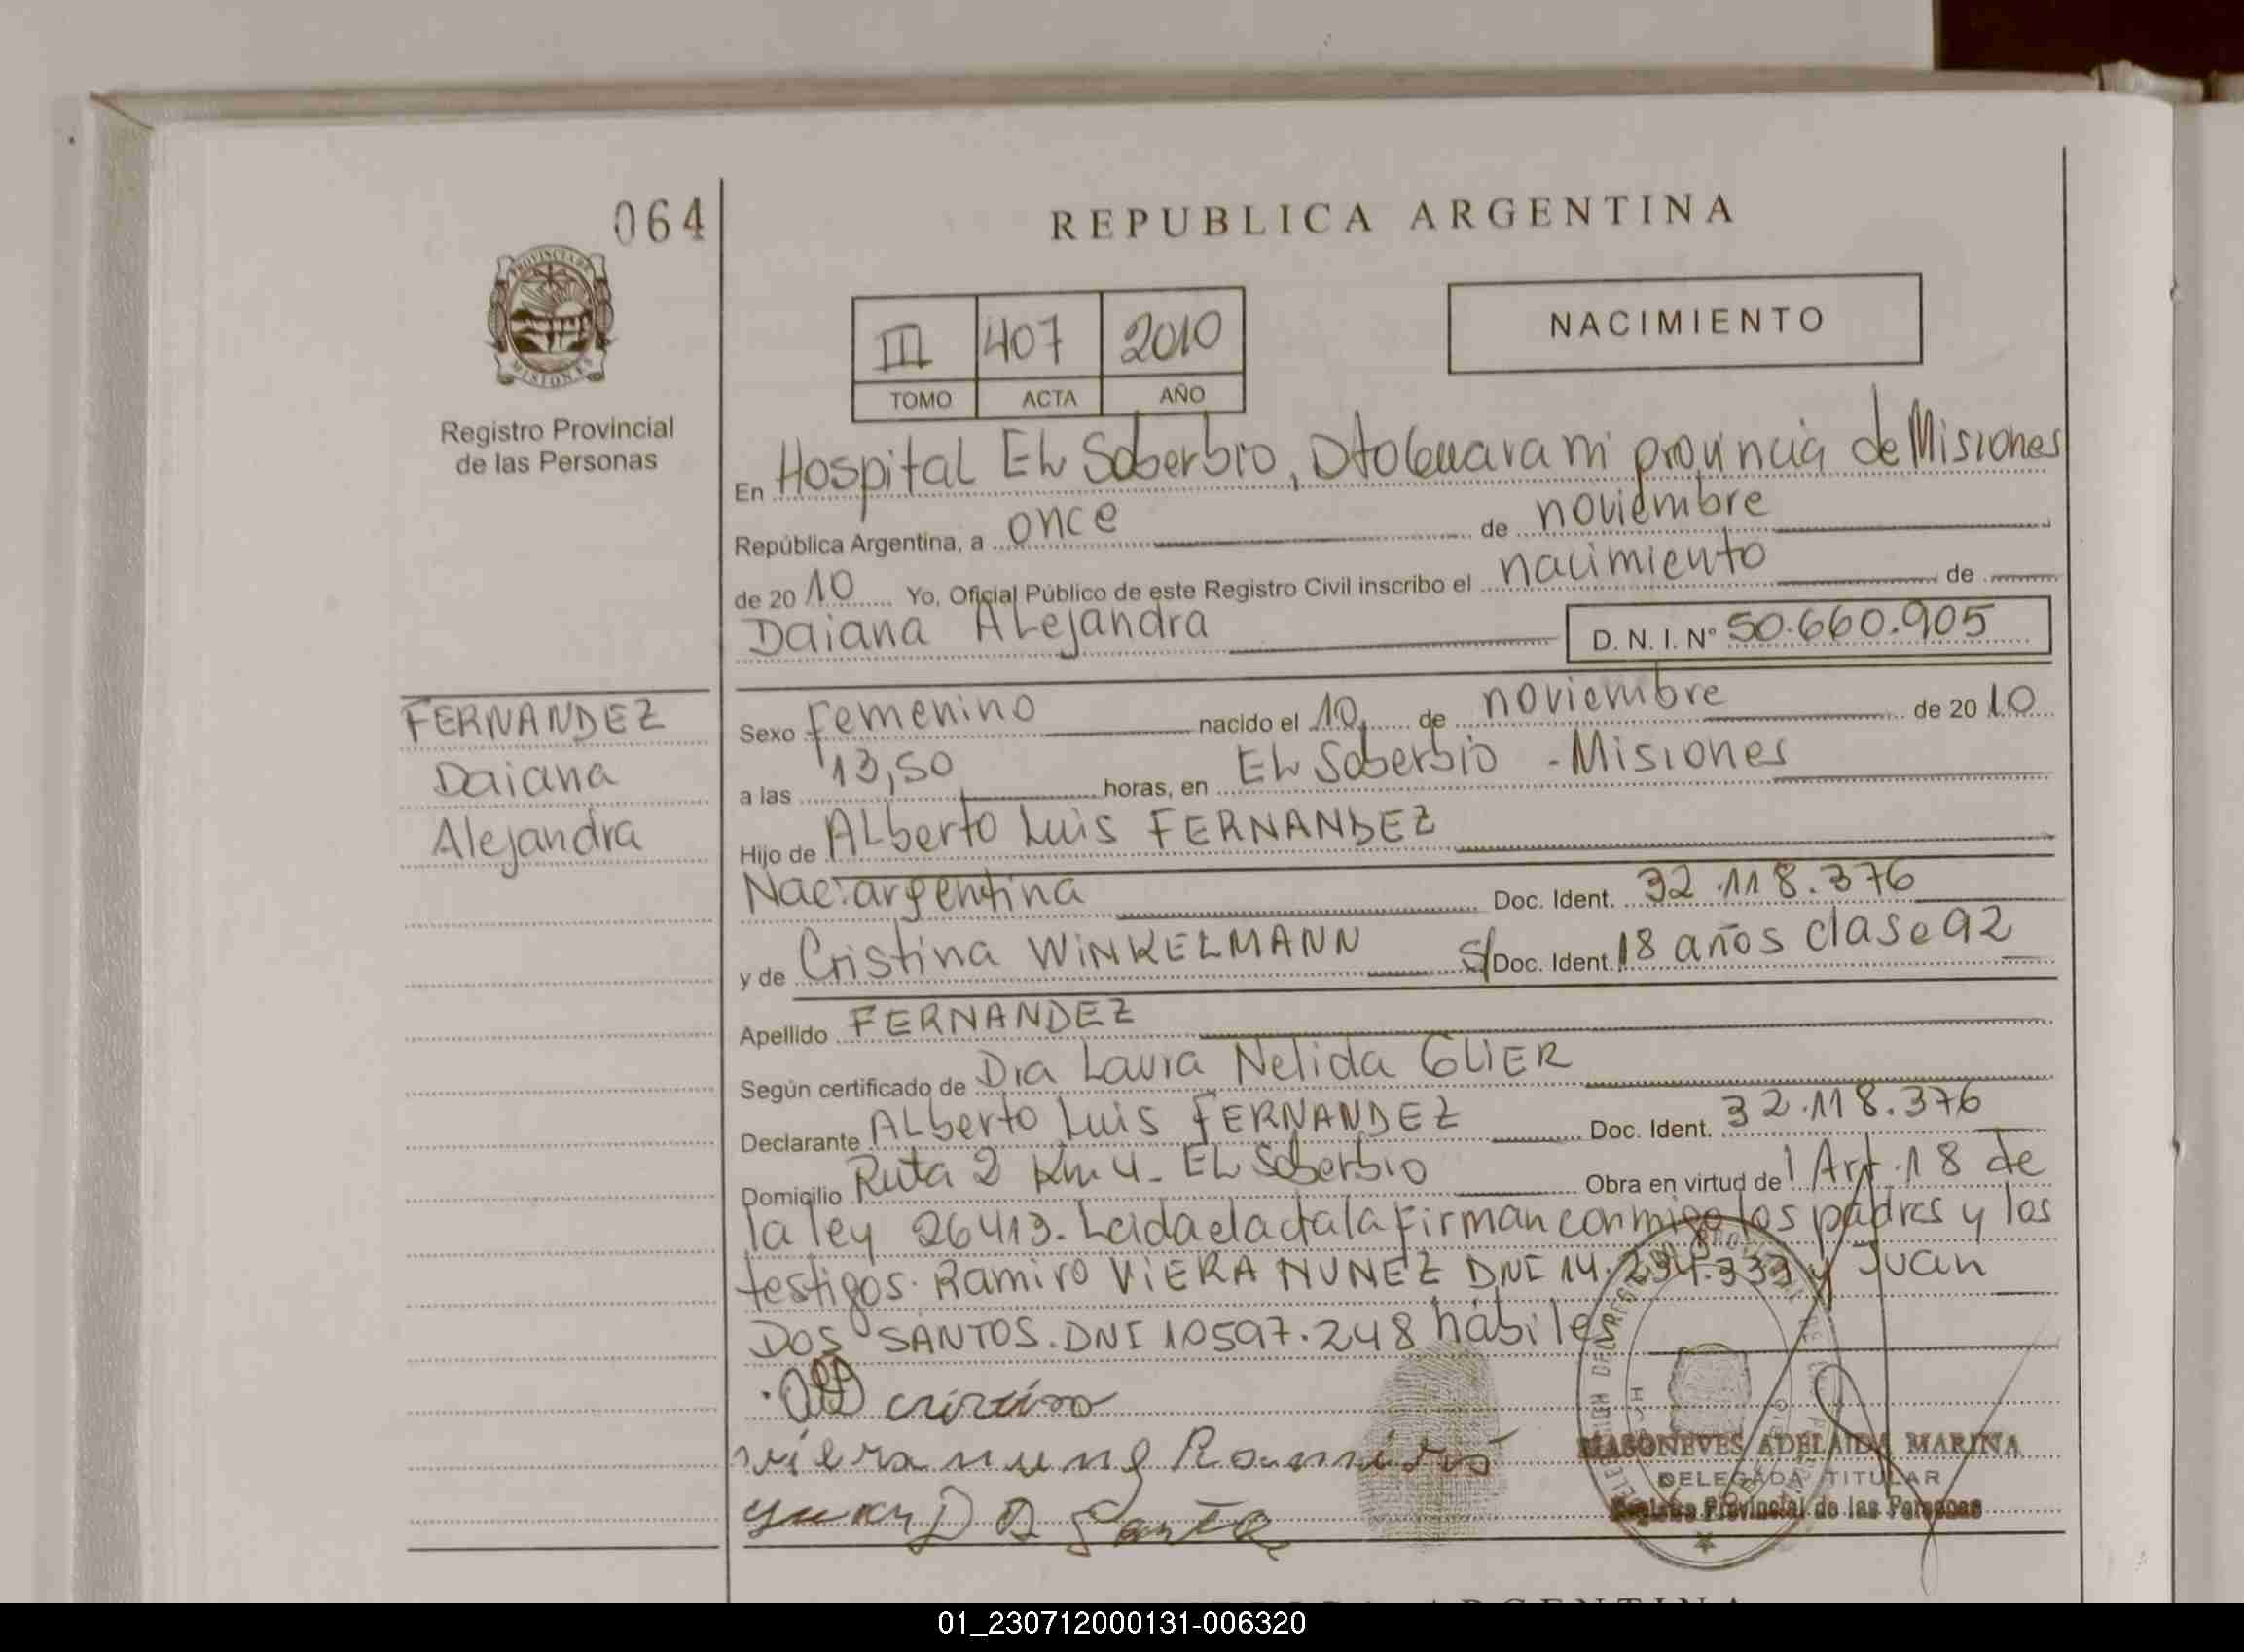 064
REPUBLICA ARGENTINA
PROVINCIA DE
MISIONES
Registro Provincial
de las Personas
III 407 2010
TOMO ACTA AÑO
NACIMIENTO
En Hospital EL Soberbio, Dto Guarani provincia de Misiones
República Argentina, a once de noviembre
de 2010 Yo, Oficial Público de este Registro Civil inscribo el nacimiento de
Daiana ALejandra D. N. I. N° 50.660.905
FERNANDEZ
Daiana
Alejandra
Sexo Femenino nacido el 10 de noviembre de 2010
a las 13,50 horas, en EL Soberbio - Misiones
Hijo de ALberto Luis FERNANDEZ
Nac: argentina Doc. Ident. 32.118.376
y de Cristina WiNKELMANN S/ Doc. Ident. 18 años clase 92
Apellido FERNANDEZ
Según certificado de Dra Laura Nelida GLIER
Declarante ALberto Luis FERNANDEZ Doc. Ident. 32.118.376
Domicilio Ruta 2 Km 4 - EL Soberbio Obra en virtud de Art. 18 de
la ley 26413. Leida el acta la firman conmigo los padres y los
testigos. Ramiro ViERA NUNEZ DNI 14.234.333 y Juan
DOS SANTOS. DNI 10597.248 hábiles
cristina
viera nunez Ramiro
MASONEVES ADELAIDA MARINA
DELEGADA TITULAR
Registro Provincial de las Personas
01_230712000131-006320